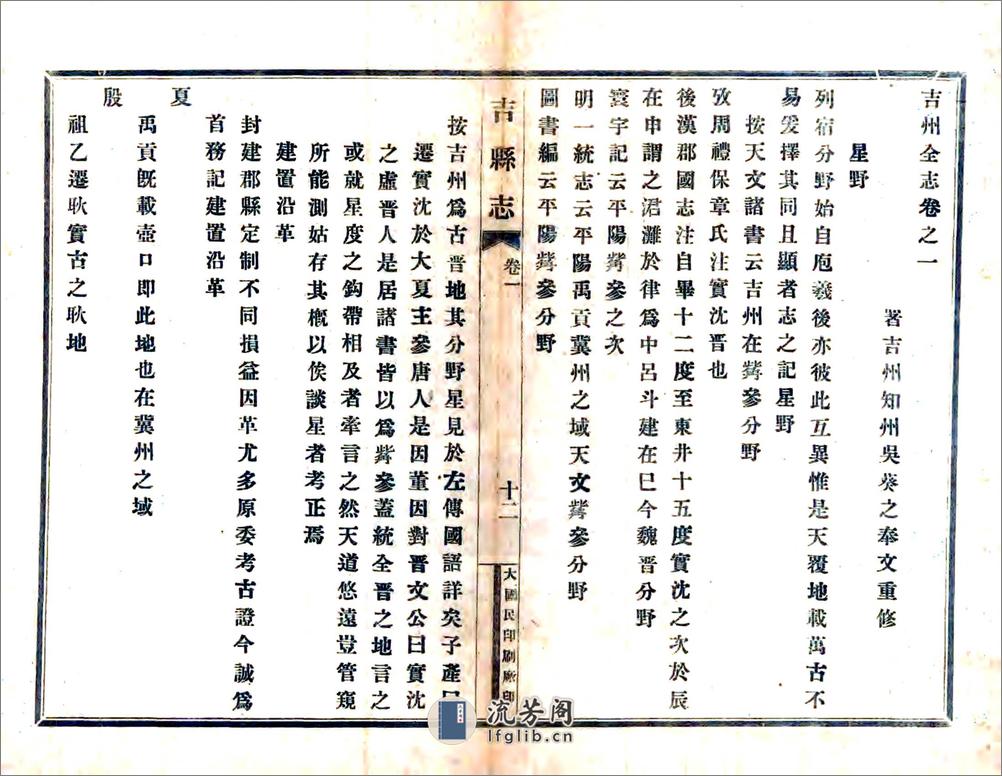 吉州全志卷之一
署吉州知州吳葵之奉文重修
星野
列宿分野始自庖羲後亦彼此互異惟是天覆地載萬古不
易爰擇其同且顯者志之記星野
按天文諸書云吉州在觜參分野
攷周禮保章氏注實沈晉也
後漢郡國志注自畢十二度至東井十五度實沈之次於辰
在申謂之涒灘於律爲中呂斗建在巳今魏晉分野
寰宇記云平陽觜參之次
明一統志云平陽禹貢冀州之域天文觜參分野
圖書編云平陽觜參分野
吉縣志
卷一
十二
大國民印刷廠印
按吉州爲古晉地其分野星見於左傳國語詳矣子產曰
遷實沈於大夏主參唐人是因董因對晉文公曰實沈
之虛晉人是居諸書皆以爲觜參蓋統全晉之地言之
或就星度之鈎帶相及者牽言之然天道悠遠豈管窺
所能測姑存其概以俟談星者考正焉
建置沿革
封建郡縣定制不同損益因革尤多原委考古證今誠爲
首務記建置沿革
夏
禹貢旣載壺口即此地也在冀州之域
殷
祖乙遷耿實古之耿地
流芳阁
lfglib.cn